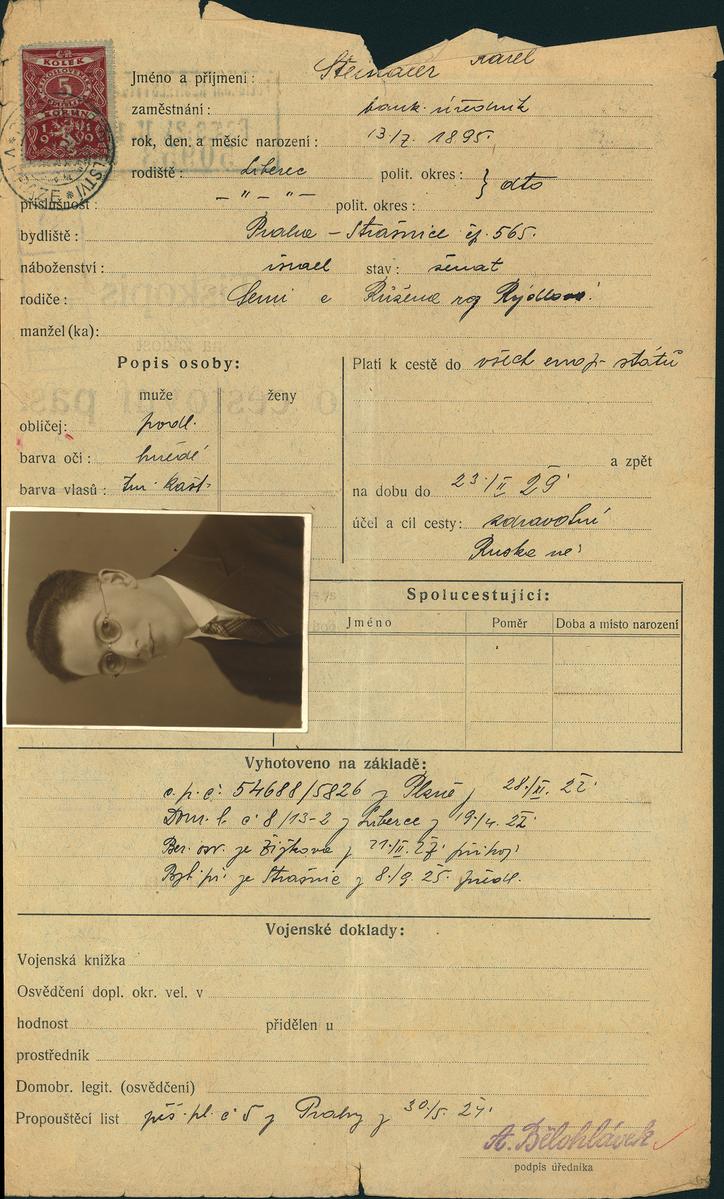 Č.R.
KOLEK
ČESKOSLOVENSKÁ
5
KORUN
19
Jméno a příjmení : Steinauer Karel
zaměstnání : bank. úředník
rok, den. a měsíc narození : 13./7. 1895.
rodiště : Liberec polit. okres : } dto
příslušnost : — " — " — polit. okres :
bydliště : Praha – Strašnice čp. 565.
náboženství : israel stav : ženat
rodiče : Semi a Růžena roz Rýdlova
manžel (ka):
Popis osoby: Platí k cestě do všech evrop. států
muže ženy
obličej: podl.
barva očí : hnědé a zpět
barva vlasů : tm. kašt. na dobu do 23./II 29
účel a cíl cesty : zdravotní
Ruska ne
Spolucestující:
Jméno Poměr Doba a místo narození
Vyhotoveno na základě:
c. p. č. 54688/5826 z Plzně z 28./XI. 22
Dom. l. č 8/13-2 z Liberce z 19/4. 22
Ber. osv. je Žižkova z II. 27
Byt. př. je Strašnic z 8./9. 25. předl.
Vojenské doklady:
Vojenská knížka
Osvědčení dopl. okr. vel. v
hodnost přidělen u
prostředník
Domobr. legit. (osvědčení)
Propouštěcí list pěš. pl. č 5 z Prahy z 30./5. 24.
A. Bělohlávek
podpis úředníka